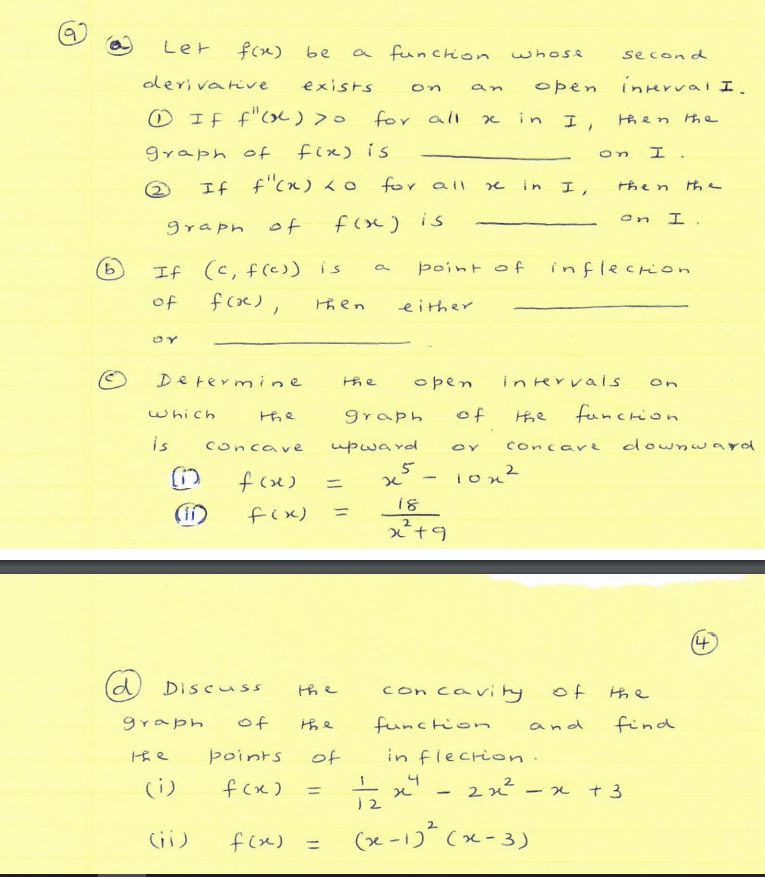 9 a Let f(x) be a function whose second
derivative exists on an open interval I.
① If f"(x) > 0 for all x in I, then the
graph of f(x) is ________ on I.
② If f"(x) < 0 for all x in I, then the
graph of f(x) is ________ on I.
b If (c, f(c)) is a point of inflection
of f(x), then either ________
or ________.
c Determine the open intervals on
which the graph of the function
is concave upward or concave downward
(i) f(x) = x⁵ - 10x²
(ii) f(x) = 18/(x²+9)
4
d Discuss the concavity of the
graph of the function and find
the points of inflection.
(i) f(x) = 1/12 x⁴ - 2x² - x + 3
(ii) f(x) = (x-1)² (x-3)